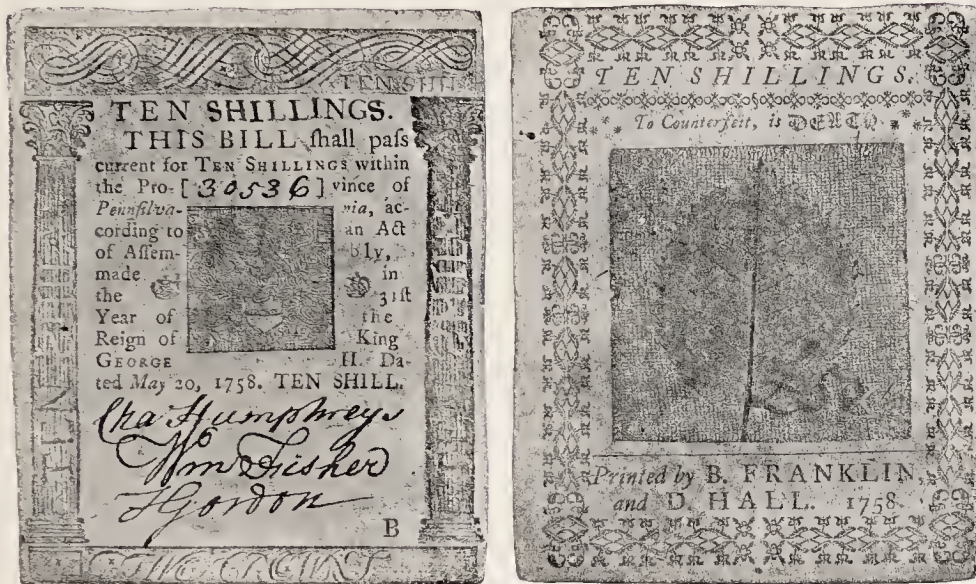 TEN SHIL
TEN SHILLINGS.
THIS BILL ſhall paſs
current for TEN SHILLINGS within
the Pro- [30536] vince of
Pennſilva- nia, ac-
cording to an Act
of Aſſem- bly,
made in
the 31ſt
Year of the
Reign of King
GEORGE II. Da-
ted May 20, 1758. TEN SHILL.
Cha Humphreys
Wm Fisher
T Gordon
B
TEN SHILLINGS.
To Counterfeit, is DEATH.
Printed by B. FRANKLIN,
and D. HALL. 1758.